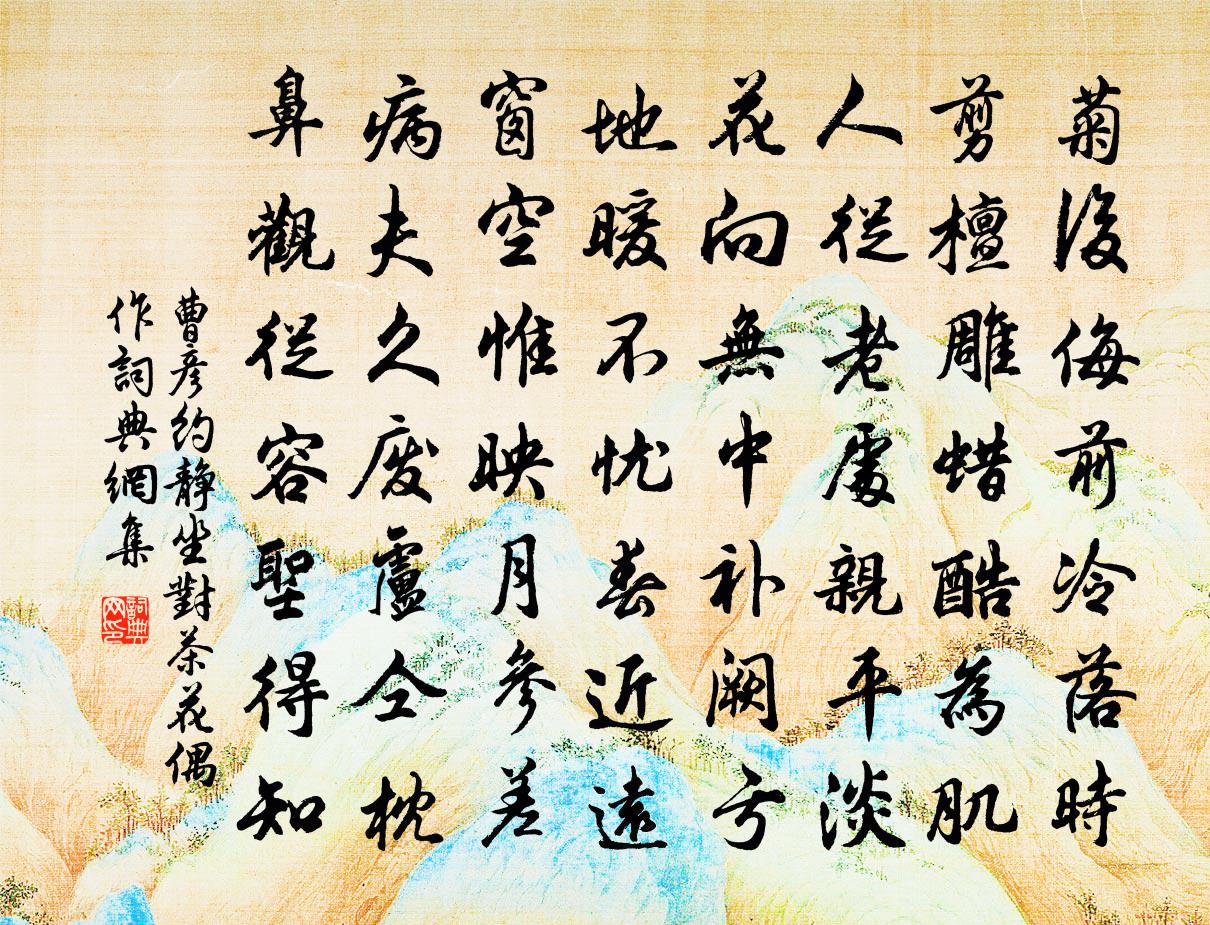 菊後侮前冷落時
剪檀雕蜡酷為肌
人從老處親平淡
花向無中补阙亏
地暖不忧春近遠
窗空惟映月參差
病夫久废盧仝枕
鼻觀從容聖得知
曹彦约静坐對茶花偶
作詞典網集
詞典
网印